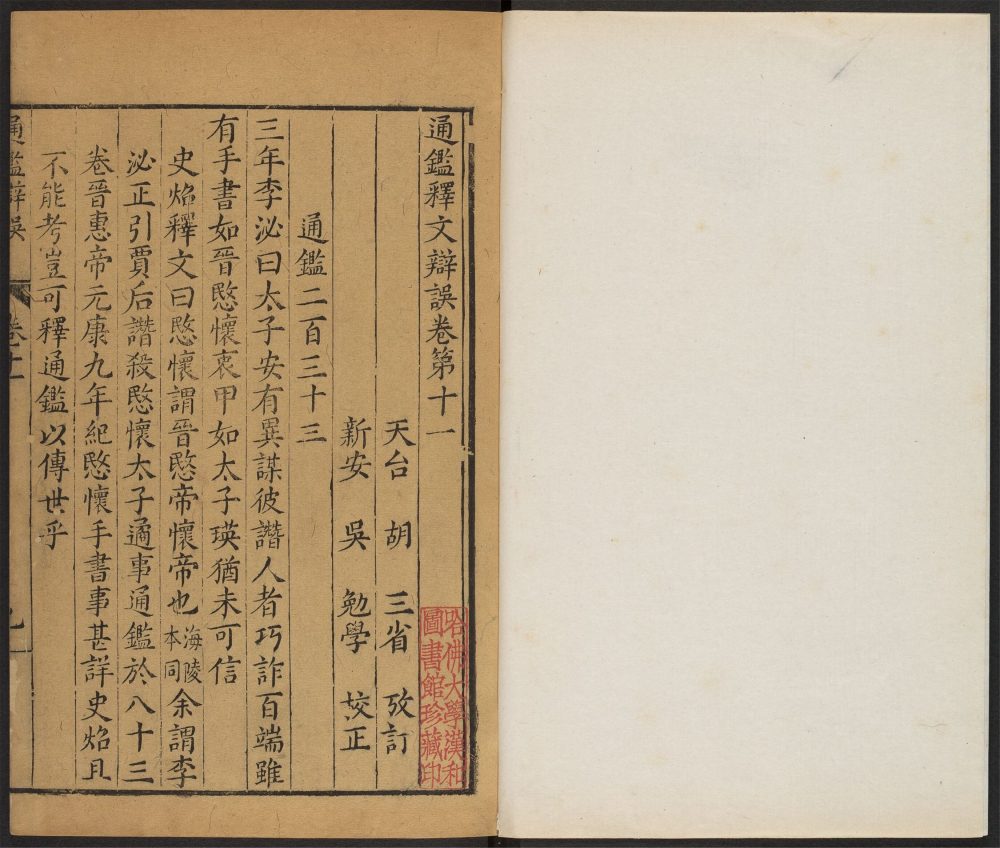 通鑑釋文辯誤卷第十一
天台 胡 三省 攷訂
新安 吳 勉學 挍正
通鑑二百三十三
三年李泌曰太子安有異謀彼譖人者巧詐百端雖
有手書如晉愍懷衷甲如太子瑛猶未可信
史炤釋文曰愍懷謂晉愍帝懷帝也海陵本同余謂李
泌正引賈后譖殺愍懷太子遹事通鑑於八十三
卷晉惠帝元康九年紀愍懷手書事甚詳史炤且
不能考豈可釋通鑑以傳世乎
通鑑辯誤 卷十一
哈佛大學漢和
圖書館珍藏印